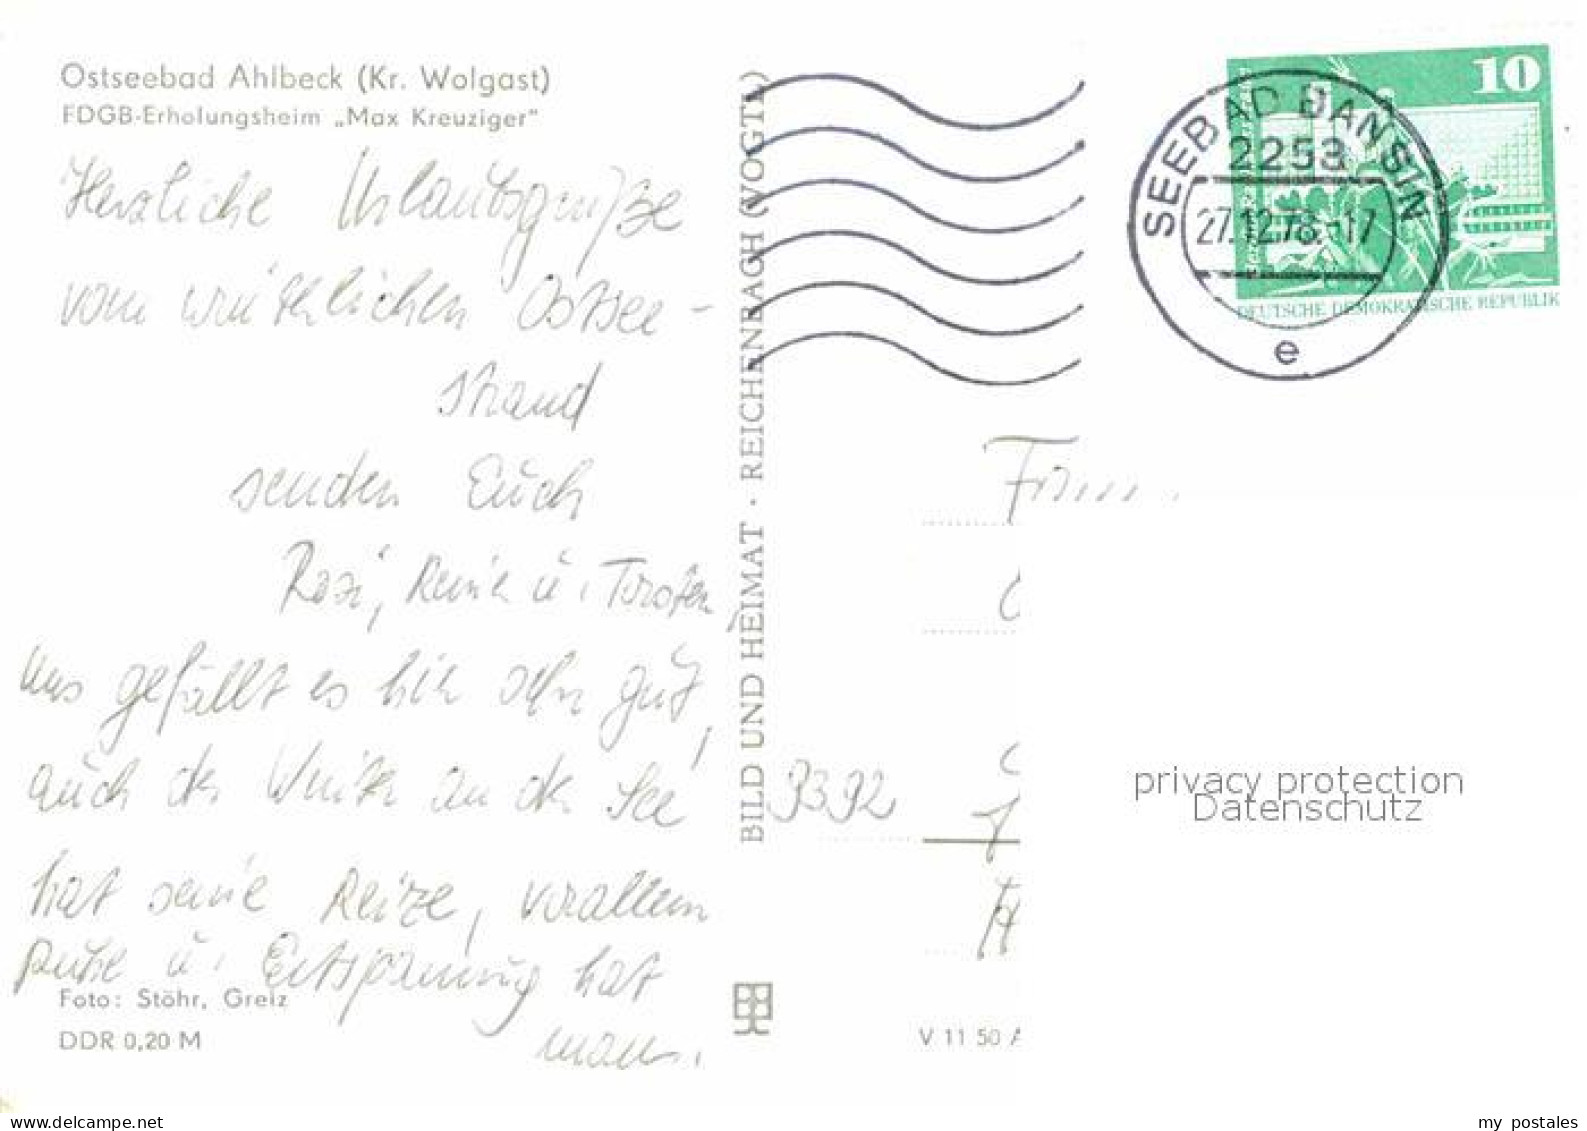 Ostseebad Ahlbeck (Kr. Wolgast)
FDGB-Erholungsheim „Max Kreuziger"
Herzliche Urlaubsgrüße
vom winterlichen Ostsee-
strand
senden Euch
Rosi, Reiner u. Torsten,
uns gefällt es hier sehr gut,
auch der Winter an der See
hat seine Reize, vorallem
Ruhe u. Entspannung hat
man.
Foto: Stöhr, Greiz
DDR 0,20 M
BILD UND HEIMAT · REICHENBACH (VOGTL)
V 11 50 A
SEEBAD BANSIN
2253
27.12.78.-17
e
10
DEUTSCHE DEMOKRATISCHE REPUBLIK
Fam.
9392
privacy protection
Datenschutz
the best of collecting
my postales